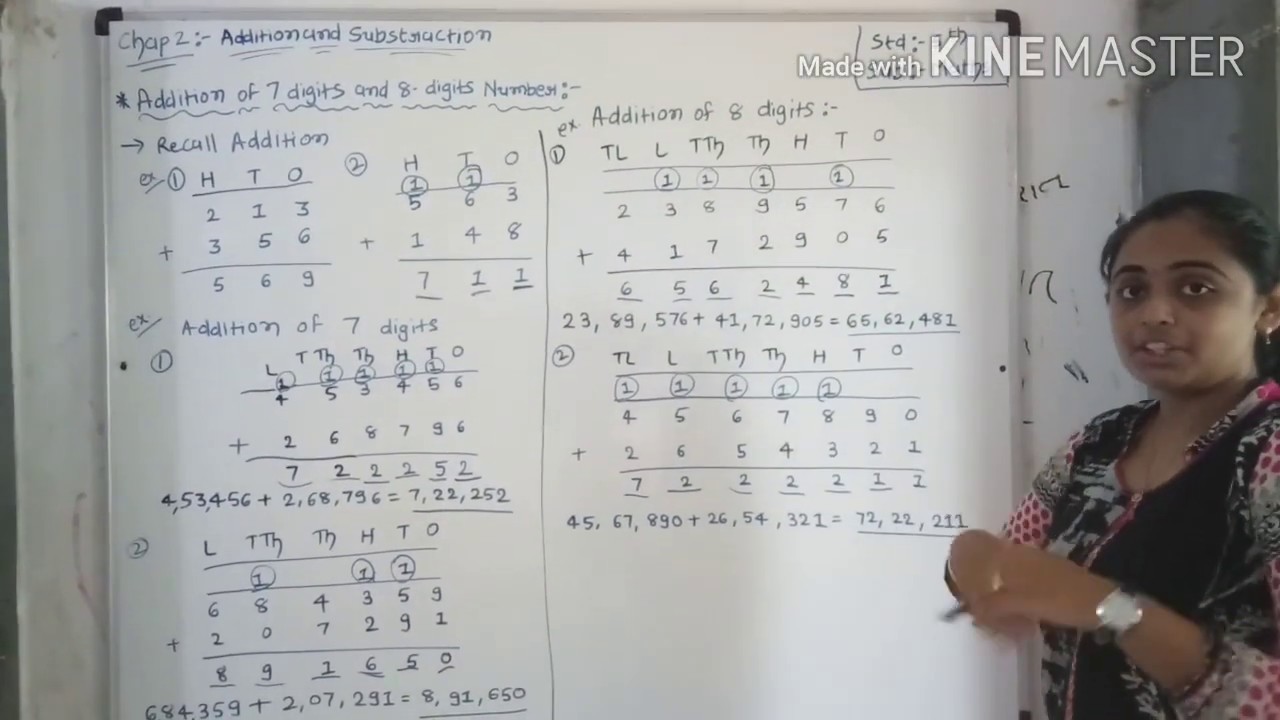 Chap 2:- Addition and Substraction
Std:- th
Made with KINEMASTER
* Addition of 7 digits and 8- digits Number:-
→ Recall Addition
ex ① H T O
2 1 3
+ 3 5 6
5 6 9
② H T O
1 1
5 6 3
+ 1 4 8
7 1 1
ex/ Addition of 7 digits
① L T Th Th H T O
1 1 1 1 1
4 5 3 4 5 6
+ 2 6 8 7 9 6
7 2 2 2 5 2
4,53,456 + 2,68,796 = 7,22,252
② L TTh Th H T O
1 1 1
6 8 4 3 5 9
+ 2 0 7 2 9 1
8 9 1 6 5 0
684,359 + 2,07,291 = 8,91,650
ex. Addition of 8 digits:-
① TL L TTh Th H T O
1 1 1 1
2 3 8 9 5 7 6
+ 4 1 7 2 9 0 5
6 5 6 2 4 8 1
23, 89, 576 + 41, 72, 905 = 65, 62, 481
② TL L TTh Th H T O
1 1 1 1 1
4 5 6 7 8 9 0
+ 2 6 5 4 3 2 1
7 2 2 2 2 1 1
45, 67, 890 + 26, 54, 321 = 72, 22, 211